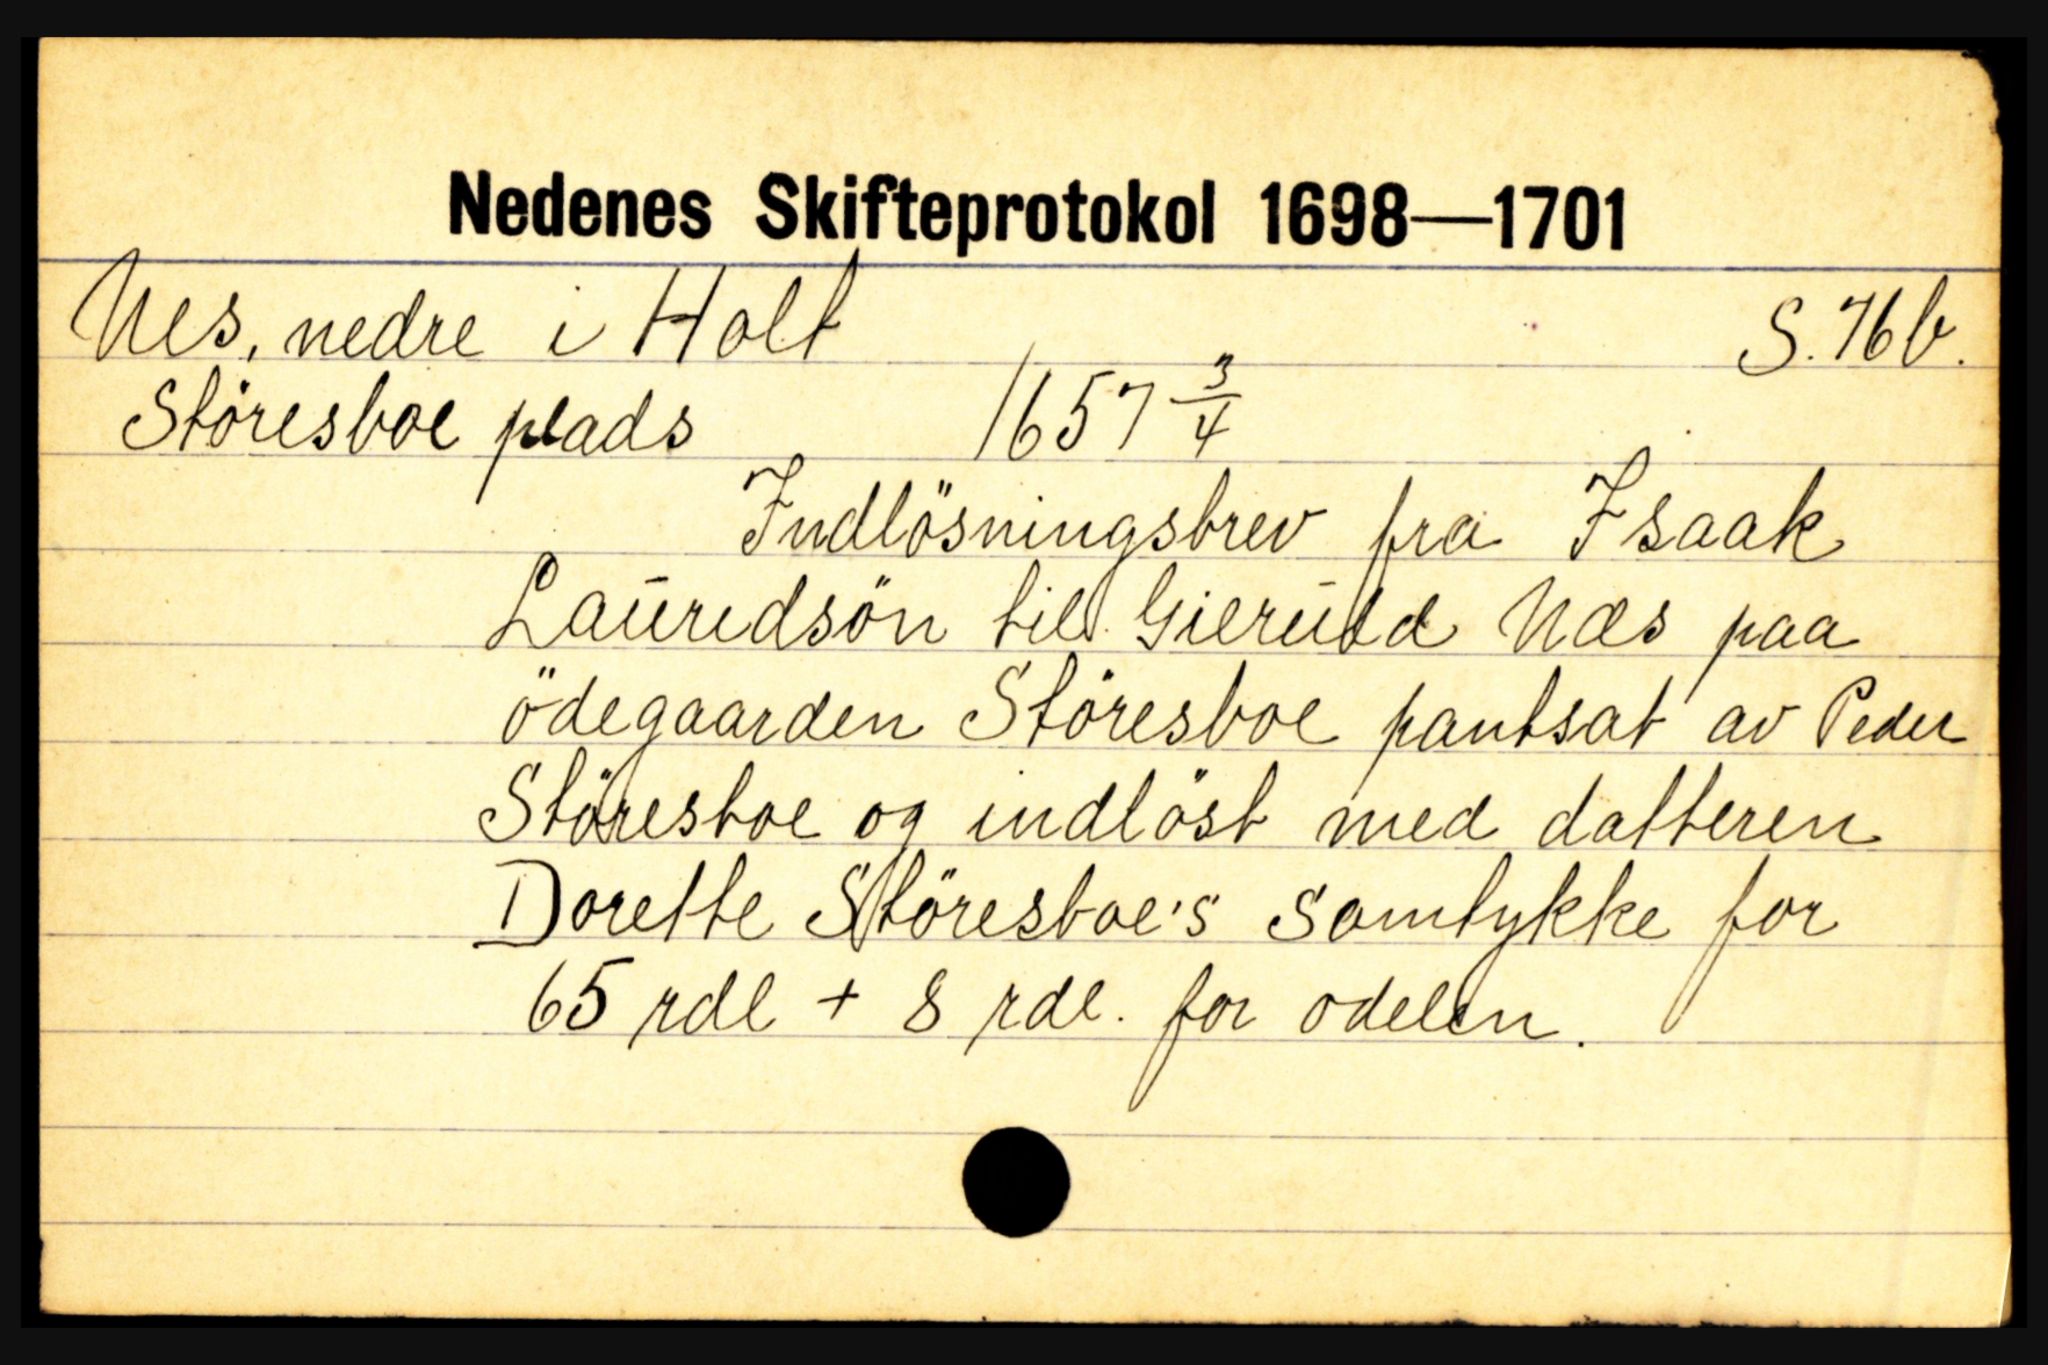 Nedenes Skifteprotokol 1698—1701
Nes, nedre i Holt S. 76 b.
Störesboe plads 1657 3/4
Indlösningsbrev fra Isaak
Lauridsön til Gieruld Næs paa
ödegaarden Störesboe pantsat av Peder
Störesboe og indlöst med datteren
Dorette Störesboe's samtykke for
65 rdl + 8 rdl. for odelen.